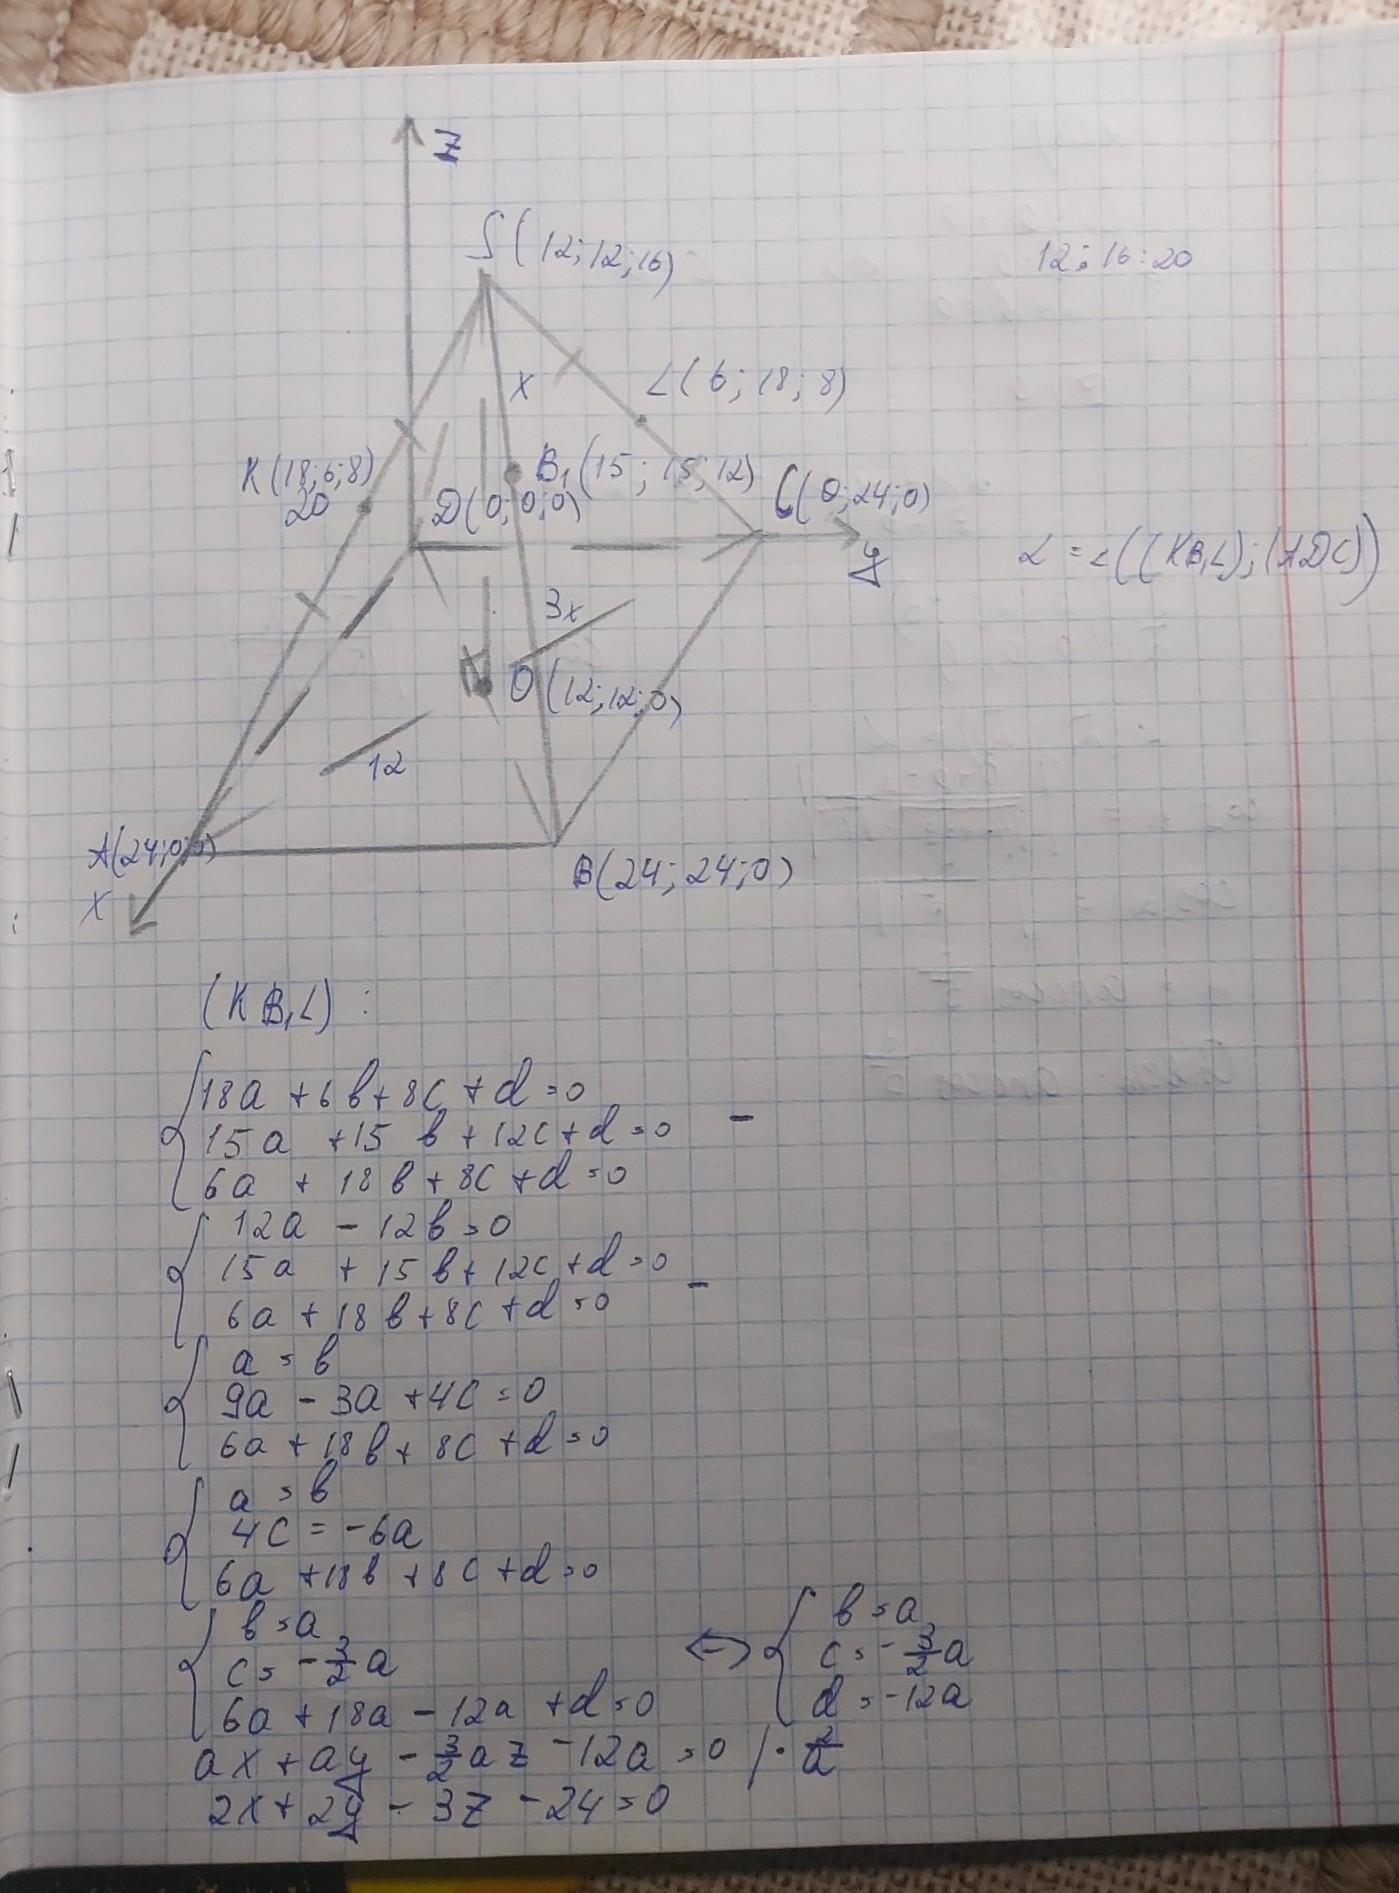 Z
S(12;12;16)
12:16:20
x
L(6;18;8)
K(18;6;8)
20
B₁(15;15;12)
D(0;0;0)
C(0;24;0)
y
α = ∠((KB₁L);(ADC))
3x
O(12;12;0)
12
A(24;0;0)
x
B(24;24;0)
(KB₁L):
18a + 6b + 8c + d = 0
15a + 15b + 12c + d = 0 -
6a + 18b + 8c + d = 0
12a - 12b = 0
15a + 15b + 12c + d = 0 -
6a + 18b + 8c + d = 0
a = b
9a - 3a + 4c = 0
6a + 18b + 8c + d = 0
a = b
4c = -6a
6a + 18b + 8c + d = 0
b = a
c = -3/2 a
6a + 18a - 12a + d = 0
<=> b = a
c = -3/2 a
d = -12a
ax + ay - 3/2 az - 12a = 0 | · 2/a
2x + 2y - 3z - 24 = 0